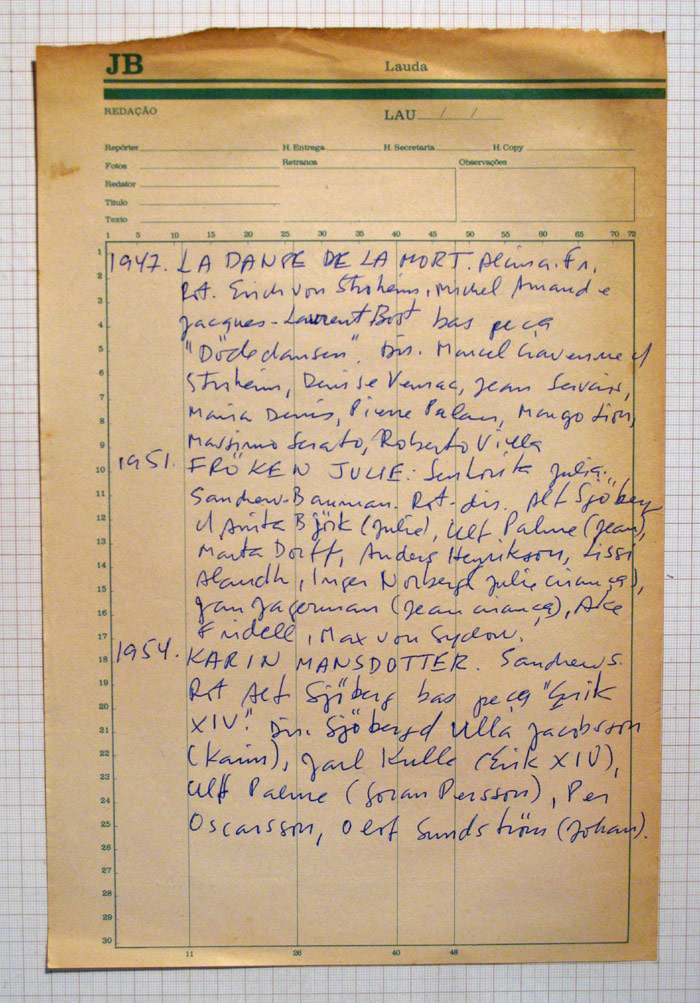 JB Lauda
REDAÇÃO LAU / /
Repórter H. Entrega H. Secretaria H. Copy
Fotos Retranca Observações
Redator
Título
Texto
1 5 10 15 20 25 30 35 40 45 50 55 60 65 70 72
1 1947. LA DANSE DE LA MORT. Alcina. Fr.
2 Rot. Erich von Stroheim, Michel Arnaud e
3 Jacques-Laurent Bost bas peça
4 "Dödsdansen". Dir. Marcel Cravenne c/
5 Stroheim, Denise Vernac, Jean Servais,
6 Maria Denis, Pierre Palau, Margo Lion,
7
8 Massimo Serato, Roberto Villa
9
10 1951. FRÖKEN JULIE. Senhorita Julia.
11 Sandrew-Bauman. Rot-dir. Alf Sjöberg
12 c/ Anita Björk (Julie), Ulf Palme (Jean),
13 Marta Dorff, Anders Henrikson, Lissi
14 Alandh, Inger Norberg (Julie criança),
15
16 Jan Hagerman (Jean criança), Ake
17 Fridell, Max von Sydow.
18 1954. KARIN MANSDOTTER. Sandrews.
19 Rot Alf Sjöberg bas peça "Erik
20 XIV". Dir. Sjöberg c/ Ulla Jacobsson
21
22 (Karin), Jarl Kulle (Erik XIV),
23
24 Ulf Palme (Goran Persson), Per
25 Oscarsson, Olof Sundström (Johan).
26
27
28
29
30
11 26 40 48